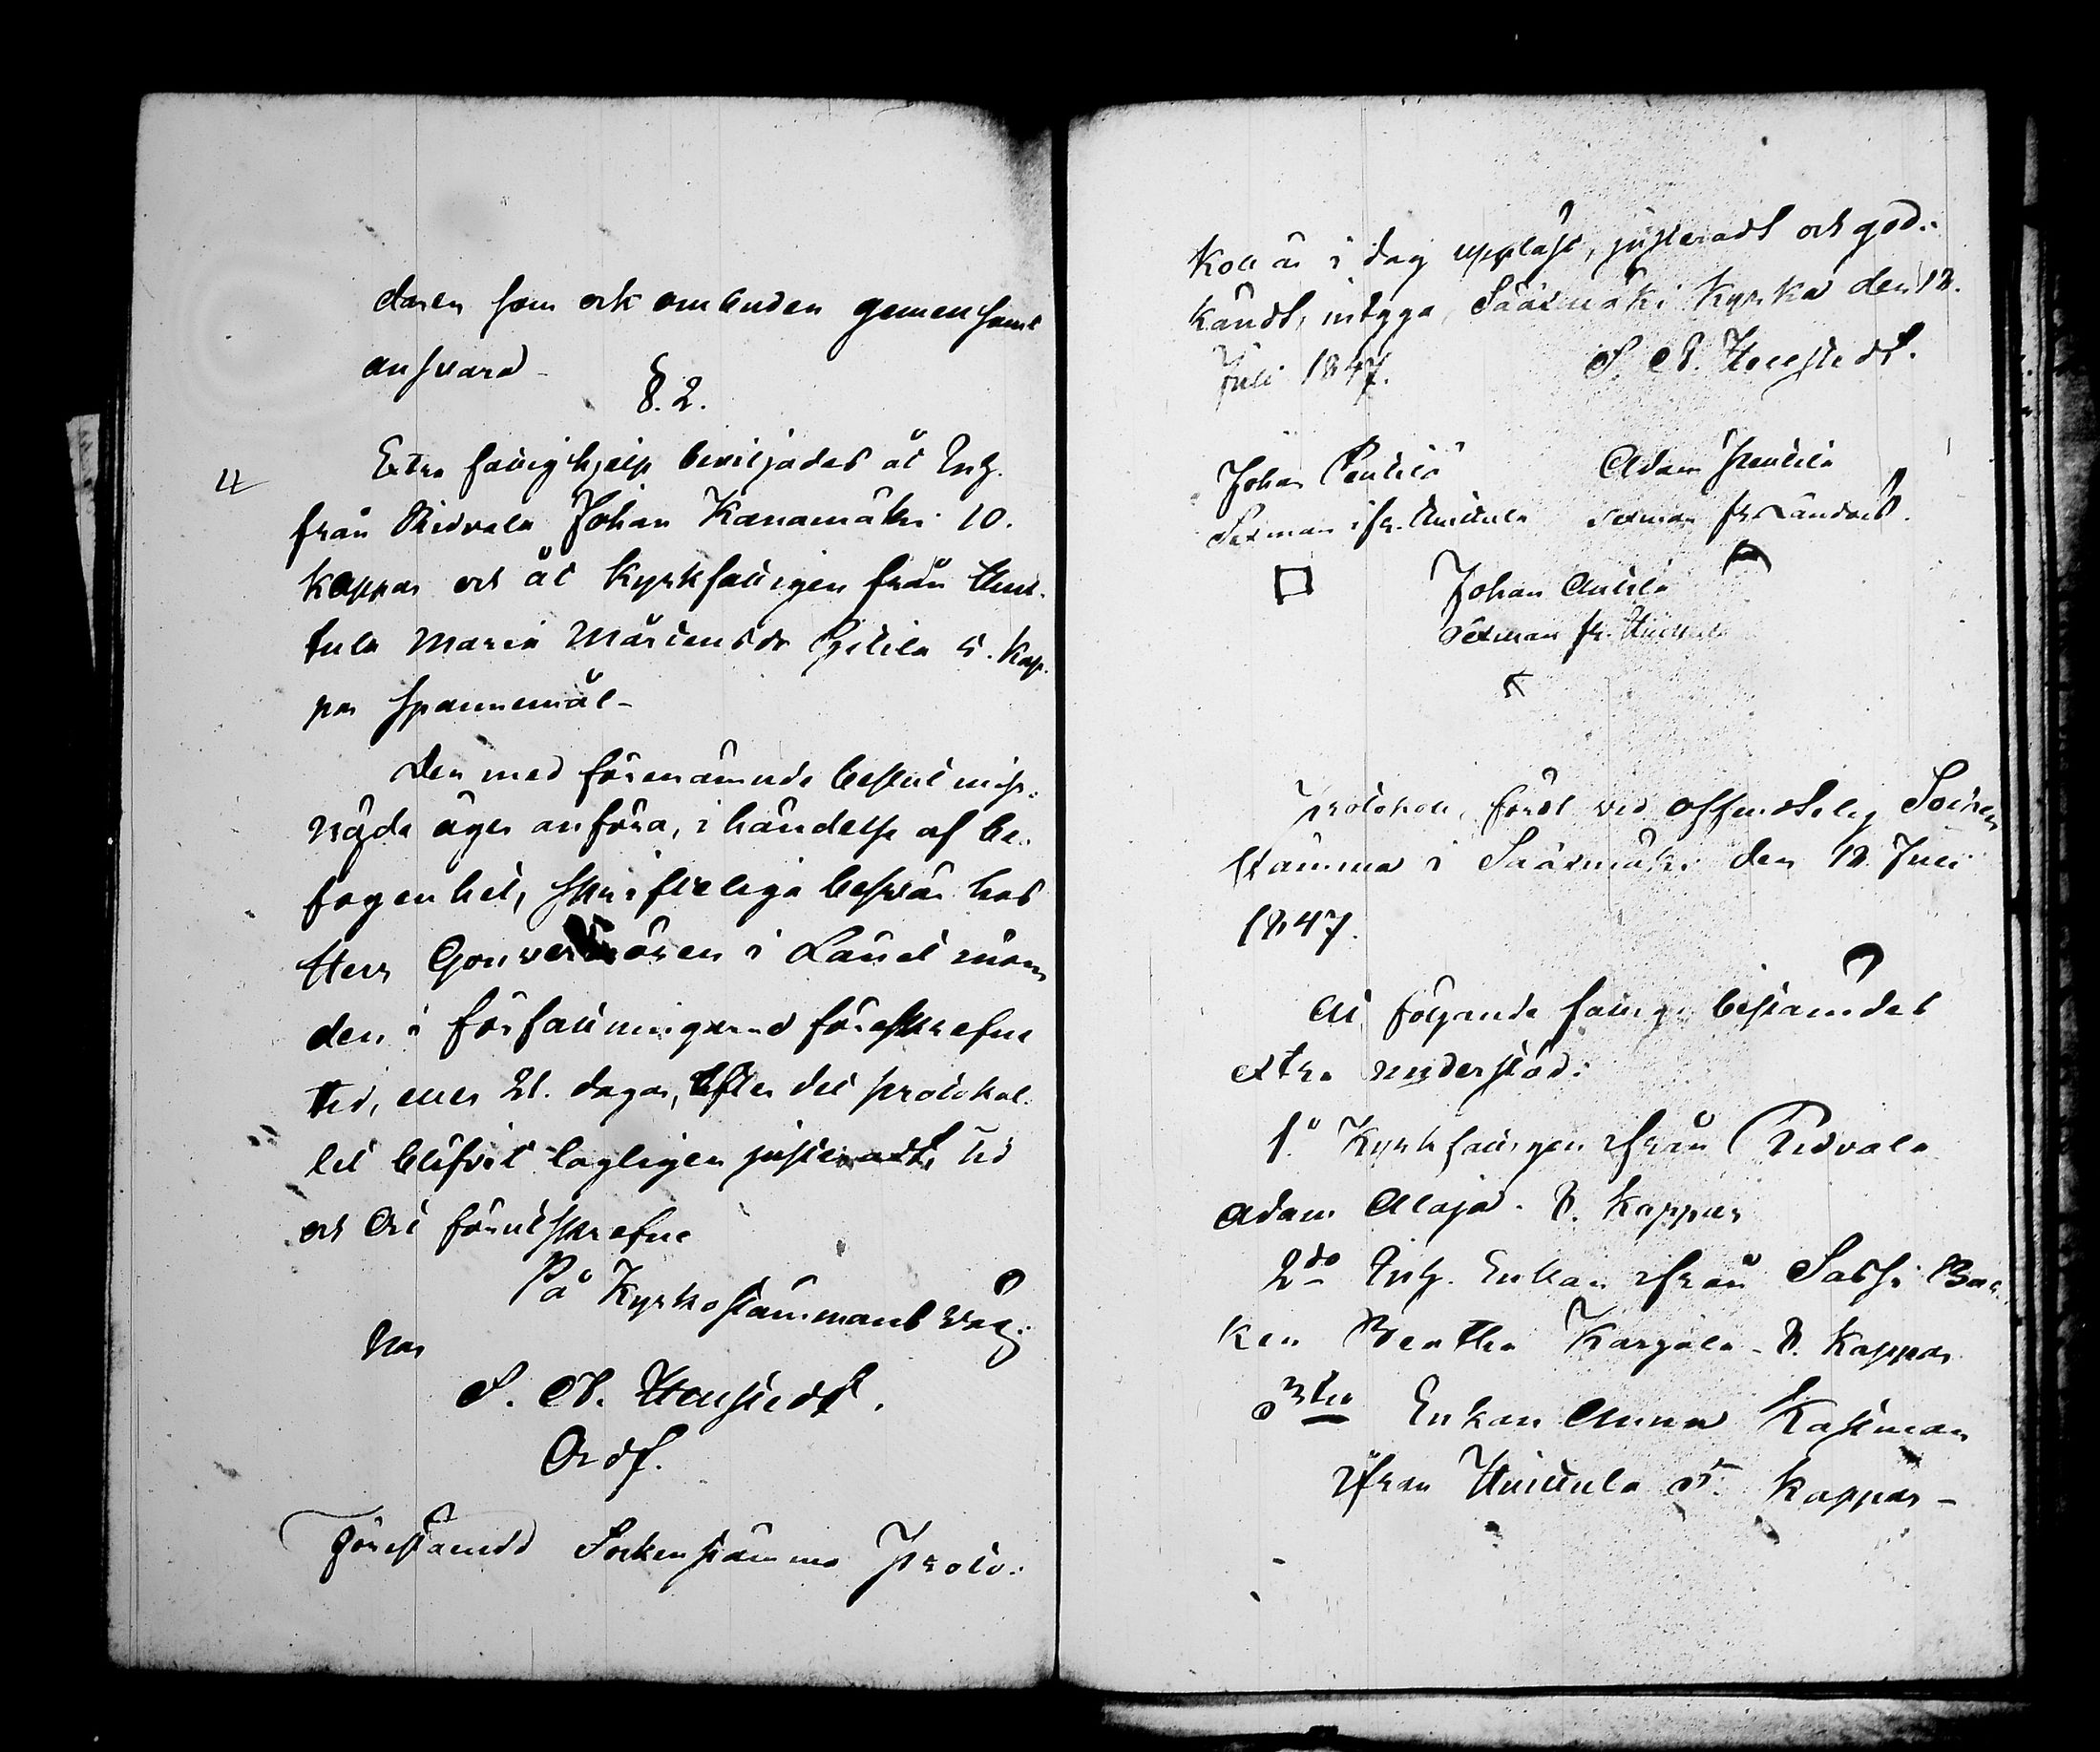 daren som ock ombuden gemensamt
ansvara -
§. 2.
4
Extra fattighjelp beviljades åt Inh.
från Ridvala Johan Kanamäki 10.
kappar och åt Kyrkfattigen från Huit-
tula Maria Mårtensdr 5. kap-
par spannemål -
Den med förenämnde beslut miss-
nögde äger anföra, i händelse af be-
fogenhet, skrifteliga besvär hos
Herr Gouvernören i Länet inom
den i författningarne föreskrefne
tid, eller 21. dagar, efter det protokol-
let blifvit lagligen justeradt, tid
och ort förutskrefne
På Kyrkostämmans väg-
nar
Ordf.
Förestående Sockenstämmo Proto-
koll är i dag uppläst, justeradt och god-
kändt, intyga, Sääxmäki Kyrka den 12.
Juli 1847.
Johan Penttilä Adam Penttilä
Sexman ifr. Huittula Sexman fr.
Johan Anttila
Sexman fr. Huittula
Protokoll, fördt vid offendtelig Socken
stämma i Sääxmäki den 12. Juli
1847.
At följande fattige bestämdes
extra understöd:
1o Kyrkfattigen ifrån Ridvala
Adam Alaja. 8. kappar
2do Inh. Enkan ifrån Sassi Bac-
ken Beatha Karjala - 8. kappar
3tio Enkan Anna
ifrån Huittula 5. kappar -